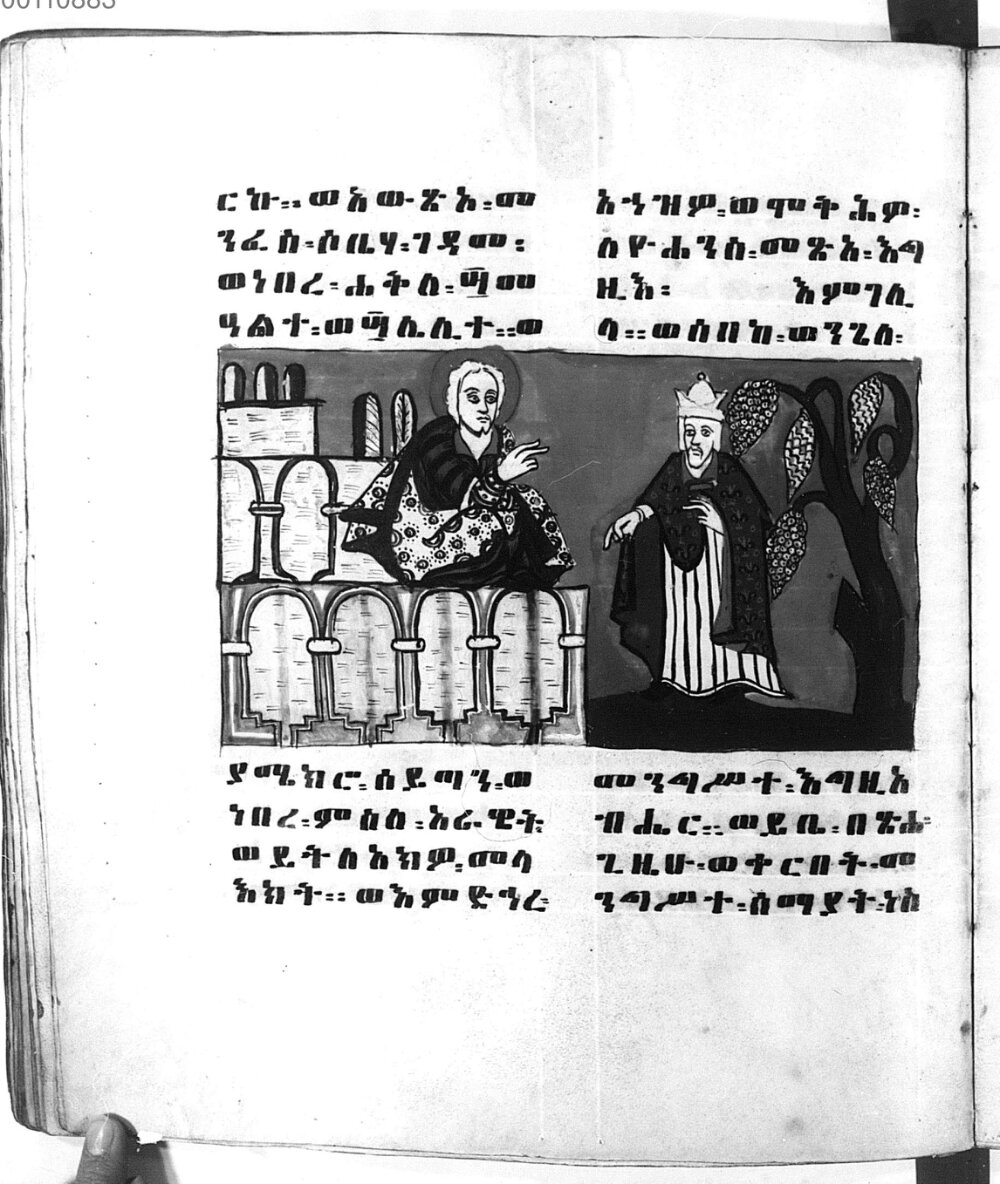 ርኩ። ወአውጽኦ፡መ
ንፈስ፡ሶቤሃ፡ገዳመ፡
ወነበረ፡ሐቅለ፡፵መ
ዓልተ፡ወ፵ሌሊተ። ወ
ያሜክሮ፡ሰይጣን፡ወ
ነበረ፡ምስለ፡አራዊት፡
ወይትለአክዎ፡መላ
እክት። ወእምድኅረ፡
አኀዝዎ፡ወሞቅሕዎ፡
ለዮሐንስ፡መጽአ፡እግ
ዚእ፡ እምገሊ
ላ። ወሰበከ፡ወንጌለ፡
መንግሥተ፡እግዚአ
ብሔር። ወይቤ፡በጽሐ፡
ጊዜሁ፡ወቀርበት፡መ
ንግሥተ፡ሰማያት፡ነስ